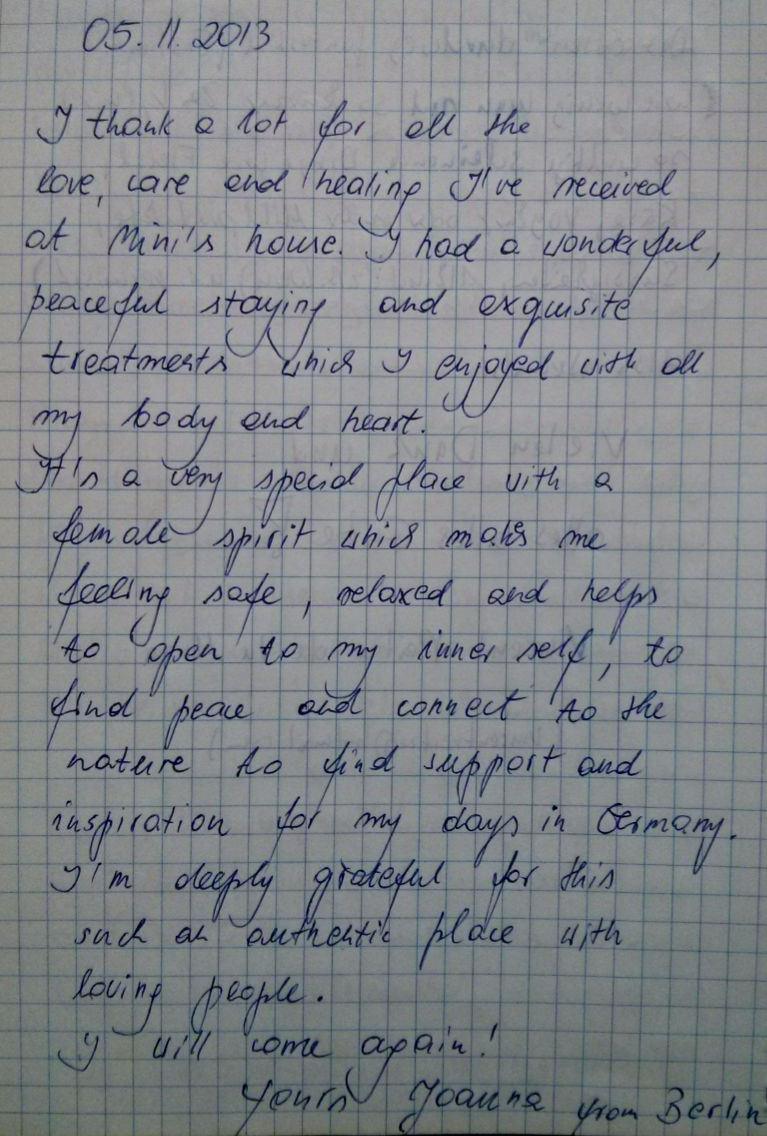 05.11.2013
I thank a lot for all the
love, care and healing I've received
at Mini's house. I had a wonderful,
peaceful staying and exquisite
treatments which I enjoyed with all
my body and heart.
It's a very special place with a
female spirit which makes me
feeling safe, relaxed and helps
to open to my inner self, to
find peace and connect to the
nature to find support and
inspiration for my days in Germany.
I'm deeply grateful for this
such an authentic place with
loving people.
I will come again!
Yours Joanna from Berlin